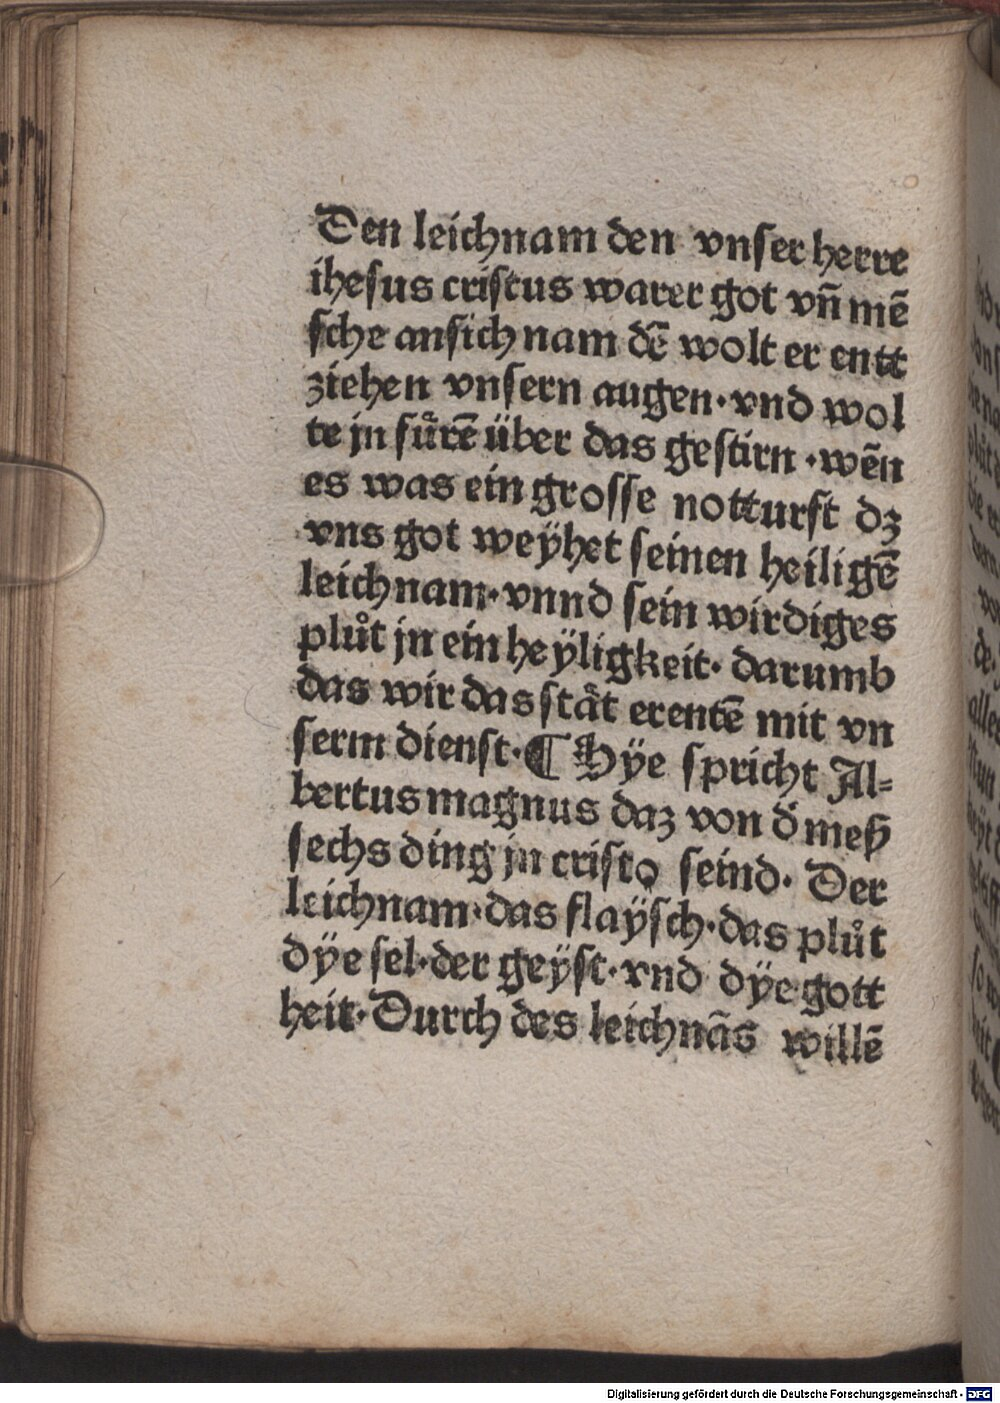 Den leichnam den vnser herre
ihesus cristus warer got vñ mē
sche ansich nam dē wolt er entt
ziehen vnsern augen·vnd wol
te jn fůrē über das gestirn ·wēn
es was ein grosse notturft dz
vns got weÿhet seinen heiligē
leichnam·vnnd sein wirdiges
plůt jn ein heÿligkeit· darumb
das wir das stǎt erentē mit vn
serm dienst·¶ Hÿe spricht Al⸗
bertus magnus daz von d̕ meß
sechs ding jn cristo seind· Der
leichnam·das flaÿsch·das plůt
dÿe sel·der geÿst·vnd dÿe gott
heit·Durch des leichnās willē
Digitalisierung gefördert durch die Deutsche Forschungsgemeinschaft - DFG